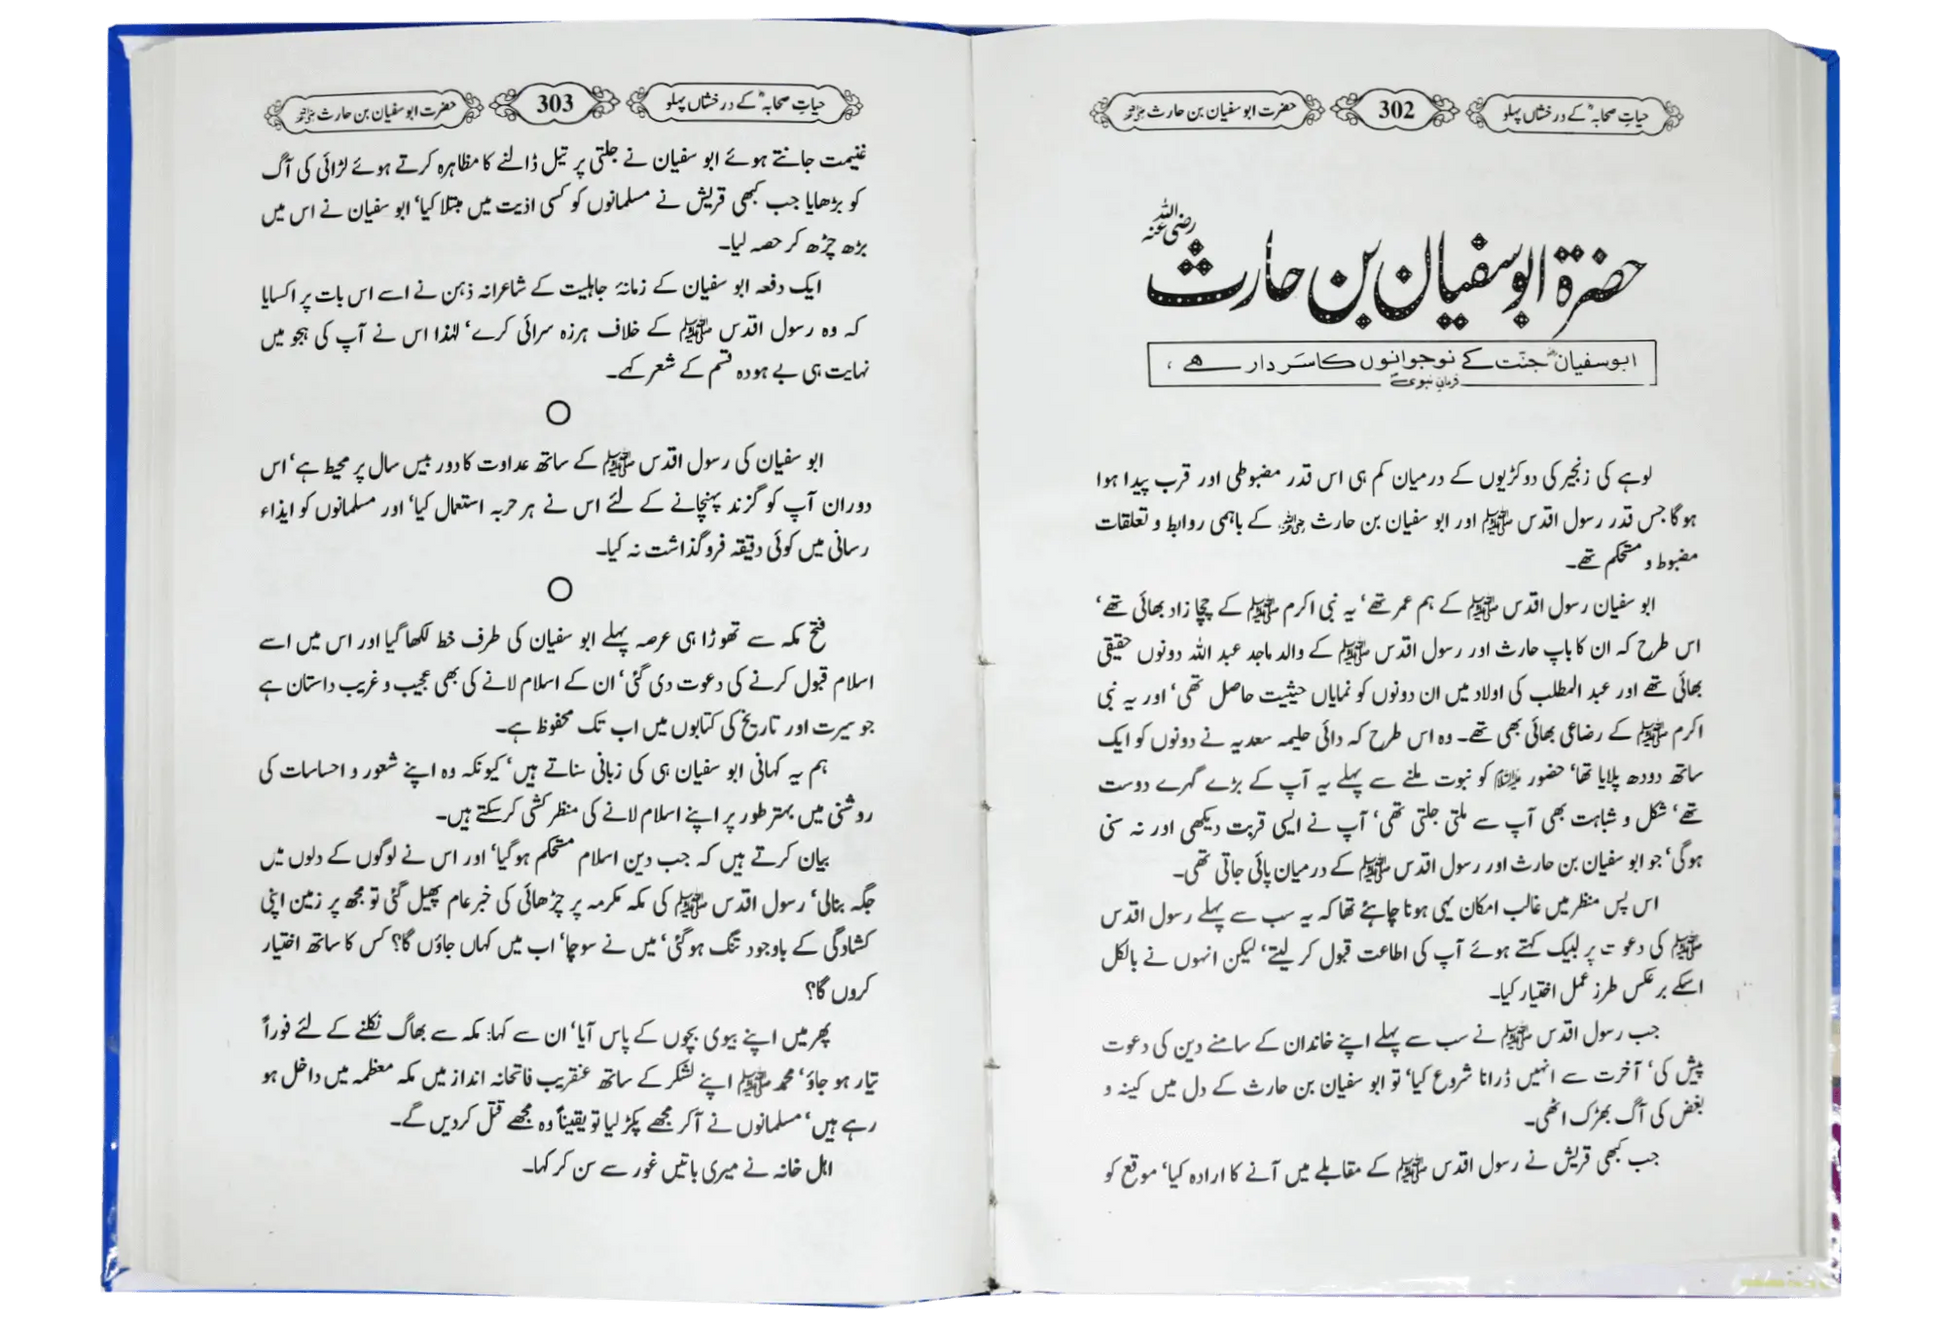 حیاتِ صحابہؓ کے درخشاں پہلو
302
حضرت ابوسفیان بن حارث رضی اللہ عنہ
حضرۃ ابوسفیان بن حارث رضی اللہ عنہ
ابوسفیانؓ جنت کے نوجوانوں کا سردار ھے ،
فرمانِ نبویؐ
لوہے کی زنجیر کی دو کڑیوں کے درمیان کم ہی اس قدر مضبوطی اور قرب پیدا ہوا
ہوگا جس قدر رسول اقدس ﷺ اور ابو سفیان بن حارث رضی اللہ عنہ کے باہمی روابط و تعلقات
مضبوط و مستحکم تھے۔
ابو سفیان رسول اقدس ﷺ کے ہم عمر تھے‘ یہ نبی اکرم ﷺ کے چچا زاد بھائی تھے‘
اس طرح کہ ان کا باپ حارث اور رسول اقدس ﷺ کے والد ماجد عبد اللہ دونوں حقیقی
بھائی تھے اور عبد المطلب کی اولاد میں ان دونوں کو نمایاں حیثیت حاصل تھی‘ اور یہ نبی
اکرم ﷺ کے رضاعی بھائی بھی تھے۔ وہ اس طرح کہ دائی حلیمہ سعدیہ نے دونوں کو ایک
ساتھ دودھ پلایا تھا‘ حضور علیہ السلام کو نبوت ملنے سے پہلے یہ آپ کے بڑے گہرے دوست
تھے‘ شکل و شباہت بھی آپ سے ملتی جلتی تھی‘ آپ نے ایسی قربت دیکھی اور نہ سنی
ہوگی‘ جو ابو سفیان بن حارث اور رسول اقدس ﷺ کے درمیان پائی جاتی تھی۔
اس پس منظر میں غالب امکان یہی ہونا چاہئے تھا کہ یہ سب سے پہلے رسول اقدس
ﷺ کی دعوت پر لبیک کہتے ہوئے آپ کی اطاعت قبول کر لیتے‘ لیکن انہوں نے بالکل
اسکے برعکس طرز عمل اختیار کیا۔
جب رسول اقدس ﷺ نے سب سے پہلے اپنے خاندان کے سامنے دین کی دعوت
پیش کی‘ آخرت سے انہیں ڈرانا شروع کیا‘ تو ابو سفیان بن حارث کے دل میں کینہ و
بغض کی آگ بھڑک اٹھی۔
جب کبھی قریش نے رسول اقدس ﷺ کے مقابلے میں آنے کا ارادہ کیا‘ موقع کو
حیاتِ صحابہؓ کے درخشاں پہلو
303
حضرت ابوسفیان بن حارث رضی اللہ عنہ
غنیمت جانتے ہوئے ابو سفیان نے جلتی پر تیل ڈالنے کا مظاہرہ کرتے ہوئے لڑائی کی آگ
کو بڑھایا جب کبھی قریش نے مسلمانوں کو کسی اذیت میں مبتلا کیا‘ ابو سفیان نے اس میں
بڑھ چڑھ کر حصہ لیا۔
ایک دفعہ ابو سفیان کے زمانۂ جاہلیت کے شاعرانہ ذہن نے اسے اس بات پر اکسایا
کہ وہ رسول اقدس ﷺ کے خلاف ہرزہ سرائی کرے‘ لہٰذا اس نے آپ کی ہجو میں
نہایت ہی بے ہودہ قسم کے شعر کہے۔
ابو سفیان کی رسول اقدس ﷺ کے ساتھ عداوت کا دور بیس سال پر محیط ہے‘ اس
دوران آپ کو گزند پہنچانے کے لئے اس نے ہر حربہ استعمال کیا‘ اور مسلمانوں کو ایذاء
رسانی میں کوئی دقیقہ فروگذاشت نہ کیا۔
فتح مکہ سے تھوڑا ہی عرصہ پہلے ابو سفیان کی طرف خط لکھا گیا اور اس میں اسے
اسلام قبول کرنے کی دعوت دی گئی‘ ان کے اسلام لانے کی بھی عجیب و غریب داستان ہے
جو سیرت اور تاریخ کی کتابوں میں اب تک محفوظ ہے۔
ہم یہ کہانی ابو سفیان ہی کی زبانی سناتے ہیں‘ کیونکہ وہ اپنے شعور و احساسات کی
روشنی میں بہتر طور پر اپنے اسلام لانے کی منظر کشی کرسکتے ہیں۔
بیان کرتے ہیں کہ جب دین اسلام مستحکم ہوگیا‘ اور اس نے لوگوں کے دلوں میں
جگہ بنالی‘ رسول اقدس ﷺ کی مکہ مکرمہ پر چڑھائی کی خبر عام پھیل گئی تو مجھ پر زمین اپنی
کشادگی کے باوجود تنگ ہوگئی‘ میں نے سوچا‘ اب میں کہاں جاؤں گا؟ کس کا ساتھ اختیار
کروں گا؟
پھر میں اپنے بیوی بچوں کے پاس آیا‘ ان سے کہا: مکہ سے بھاگ نکلنے کے لئے فوراً
تیار ہو جاؤ‘ محمد ﷺ اپنے لشکر کے ساتھ عنقریب فاتحانہ انداز میں مکہ معظمہ میں داخل ہو
رہے ہیں‘ مسلمانوں نے آکر مجھے پکڑ لیا تو یقیناً وہ مجھے قتل کردیں گے۔
اہل خانہ نے میری باتیں غور سے سن کر کہا۔